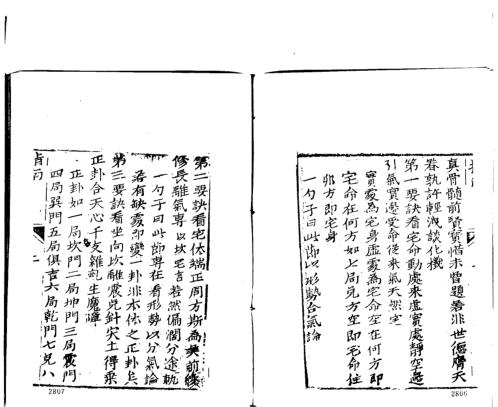 真骨髓前賢寶惜未曾題若非世德膺天
眷執許輕洩談化機
第一要訣看宅命動處來虛實處靜空邊
引氣實邊受命從來氣天然定
實處為宅身虛處為宅命空在何方即
宅命在何方如上局兑方空即宅命住
邪方即宅身
一勺子曰此節以形勢合氣論
2806
第二要訣看宅体端正周方斯為美前後
修長雖氣專以坎宅言若然偏濶分途軌
一勺子曰此節專在看形勢以分氣論
落有缺處即變一卦非本体之正卦矣
第三要訣看坐向坎離震兑針宋土得乘
正卦合天心千支雜乱生魔障
正卦如一局坎門二局坤門三局震門
四局巽門五局俱吉六局乾門七兑八
指南
二
2807